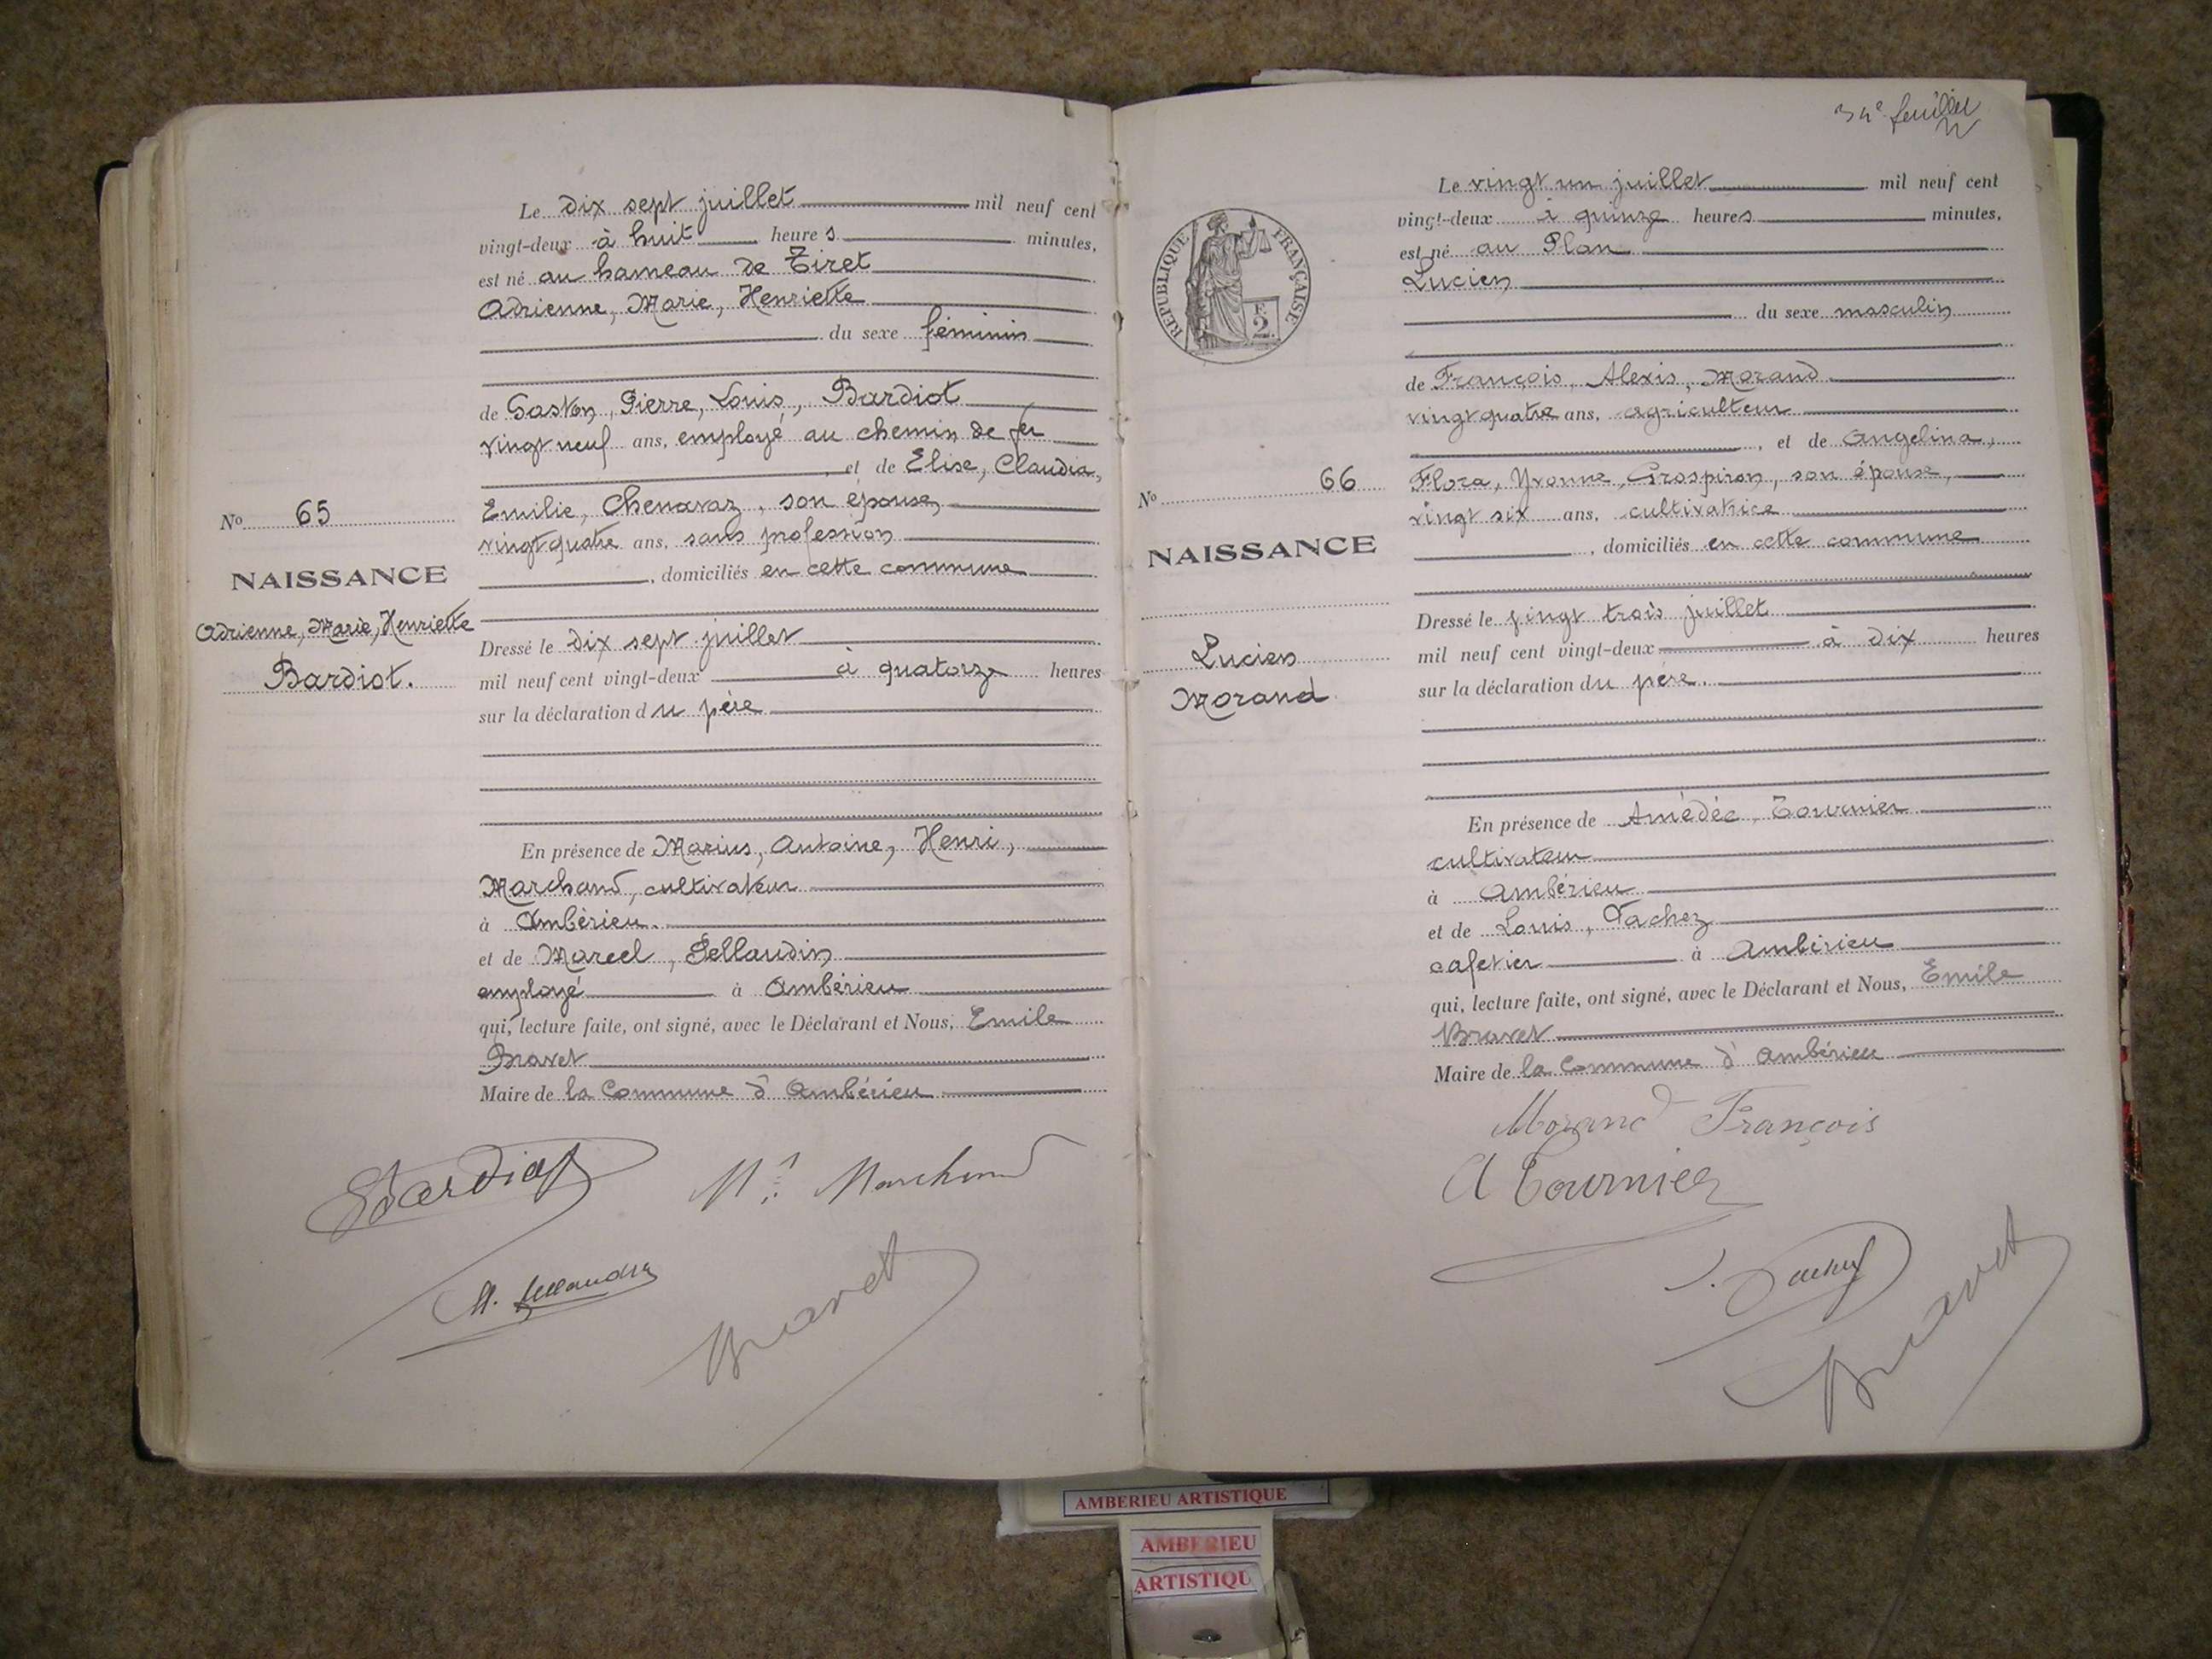 Le dix sept juillet mil neuf cent
vingt-deux à huit heures minutes,
est né au hameau de Tiret
Adrienne, Marie, Henriette
du sexe féminin
de Gaston, Pierre, Louis, Bardiot
vingt neuf ans, employé au chemin de fer
, et de Elise, Claudia,
Emilie, Chenavaz, son épouse,
vingt quatre ans, sans profession
, domiciliés en cette commune
Dressé le dix sept juillet
mil neuf cent vingt-deux à quatorze heures
sur la déclaration du père
En présence de Marius, Antoine, Henri,
Marchand, cultivateur
à Ambérieu.
et de Marcel, Pellaudin
employé à Ambérieu
qui, lecture faite, ont signé, avec le Déclarant et Nous, Emile
Bravet
Maire de la Commune d'Ambérieu
No 65
NAISSANCE
Adrienne, Marie, Henriette
Bardiot.
Bardiot
Marchand
Bravet
34e feuillet
RÉPUBLIQUE FRANÇAISE
F.
2
Le vingt un juillet mil neuf cent
vingt-deux à quinze heures minutes,
est né au Plan
Lucien
du sexe masculin
de François, Alexis, Morand
vingt quatre ans, agriculteur
, et de Angelina,
Flora, Yvonne, Grospiron, son épouse,
vingt six ans, cultivatrice
, domiciliés en cette commune
Dressé le vingt trois juillet
mil neuf cent vingt-deux à dix heures
sur la déclaration du père.
En présence de Amédée, Tournier
cultivateur
à Ambérieu
et de Louis, Tachez
cafetier à Ambérieu
qui, lecture faite, ont signé, avec le Déclarant et Nous, Emile
Bravet
Maire de la Commune d'Ambérieu
No 66
NAISSANCE
Lucien
Morand
Morand François
A Tournier
Bravet
AMBERIEU ARTISTIQUE
AMBERIEU
ARTISTIQU